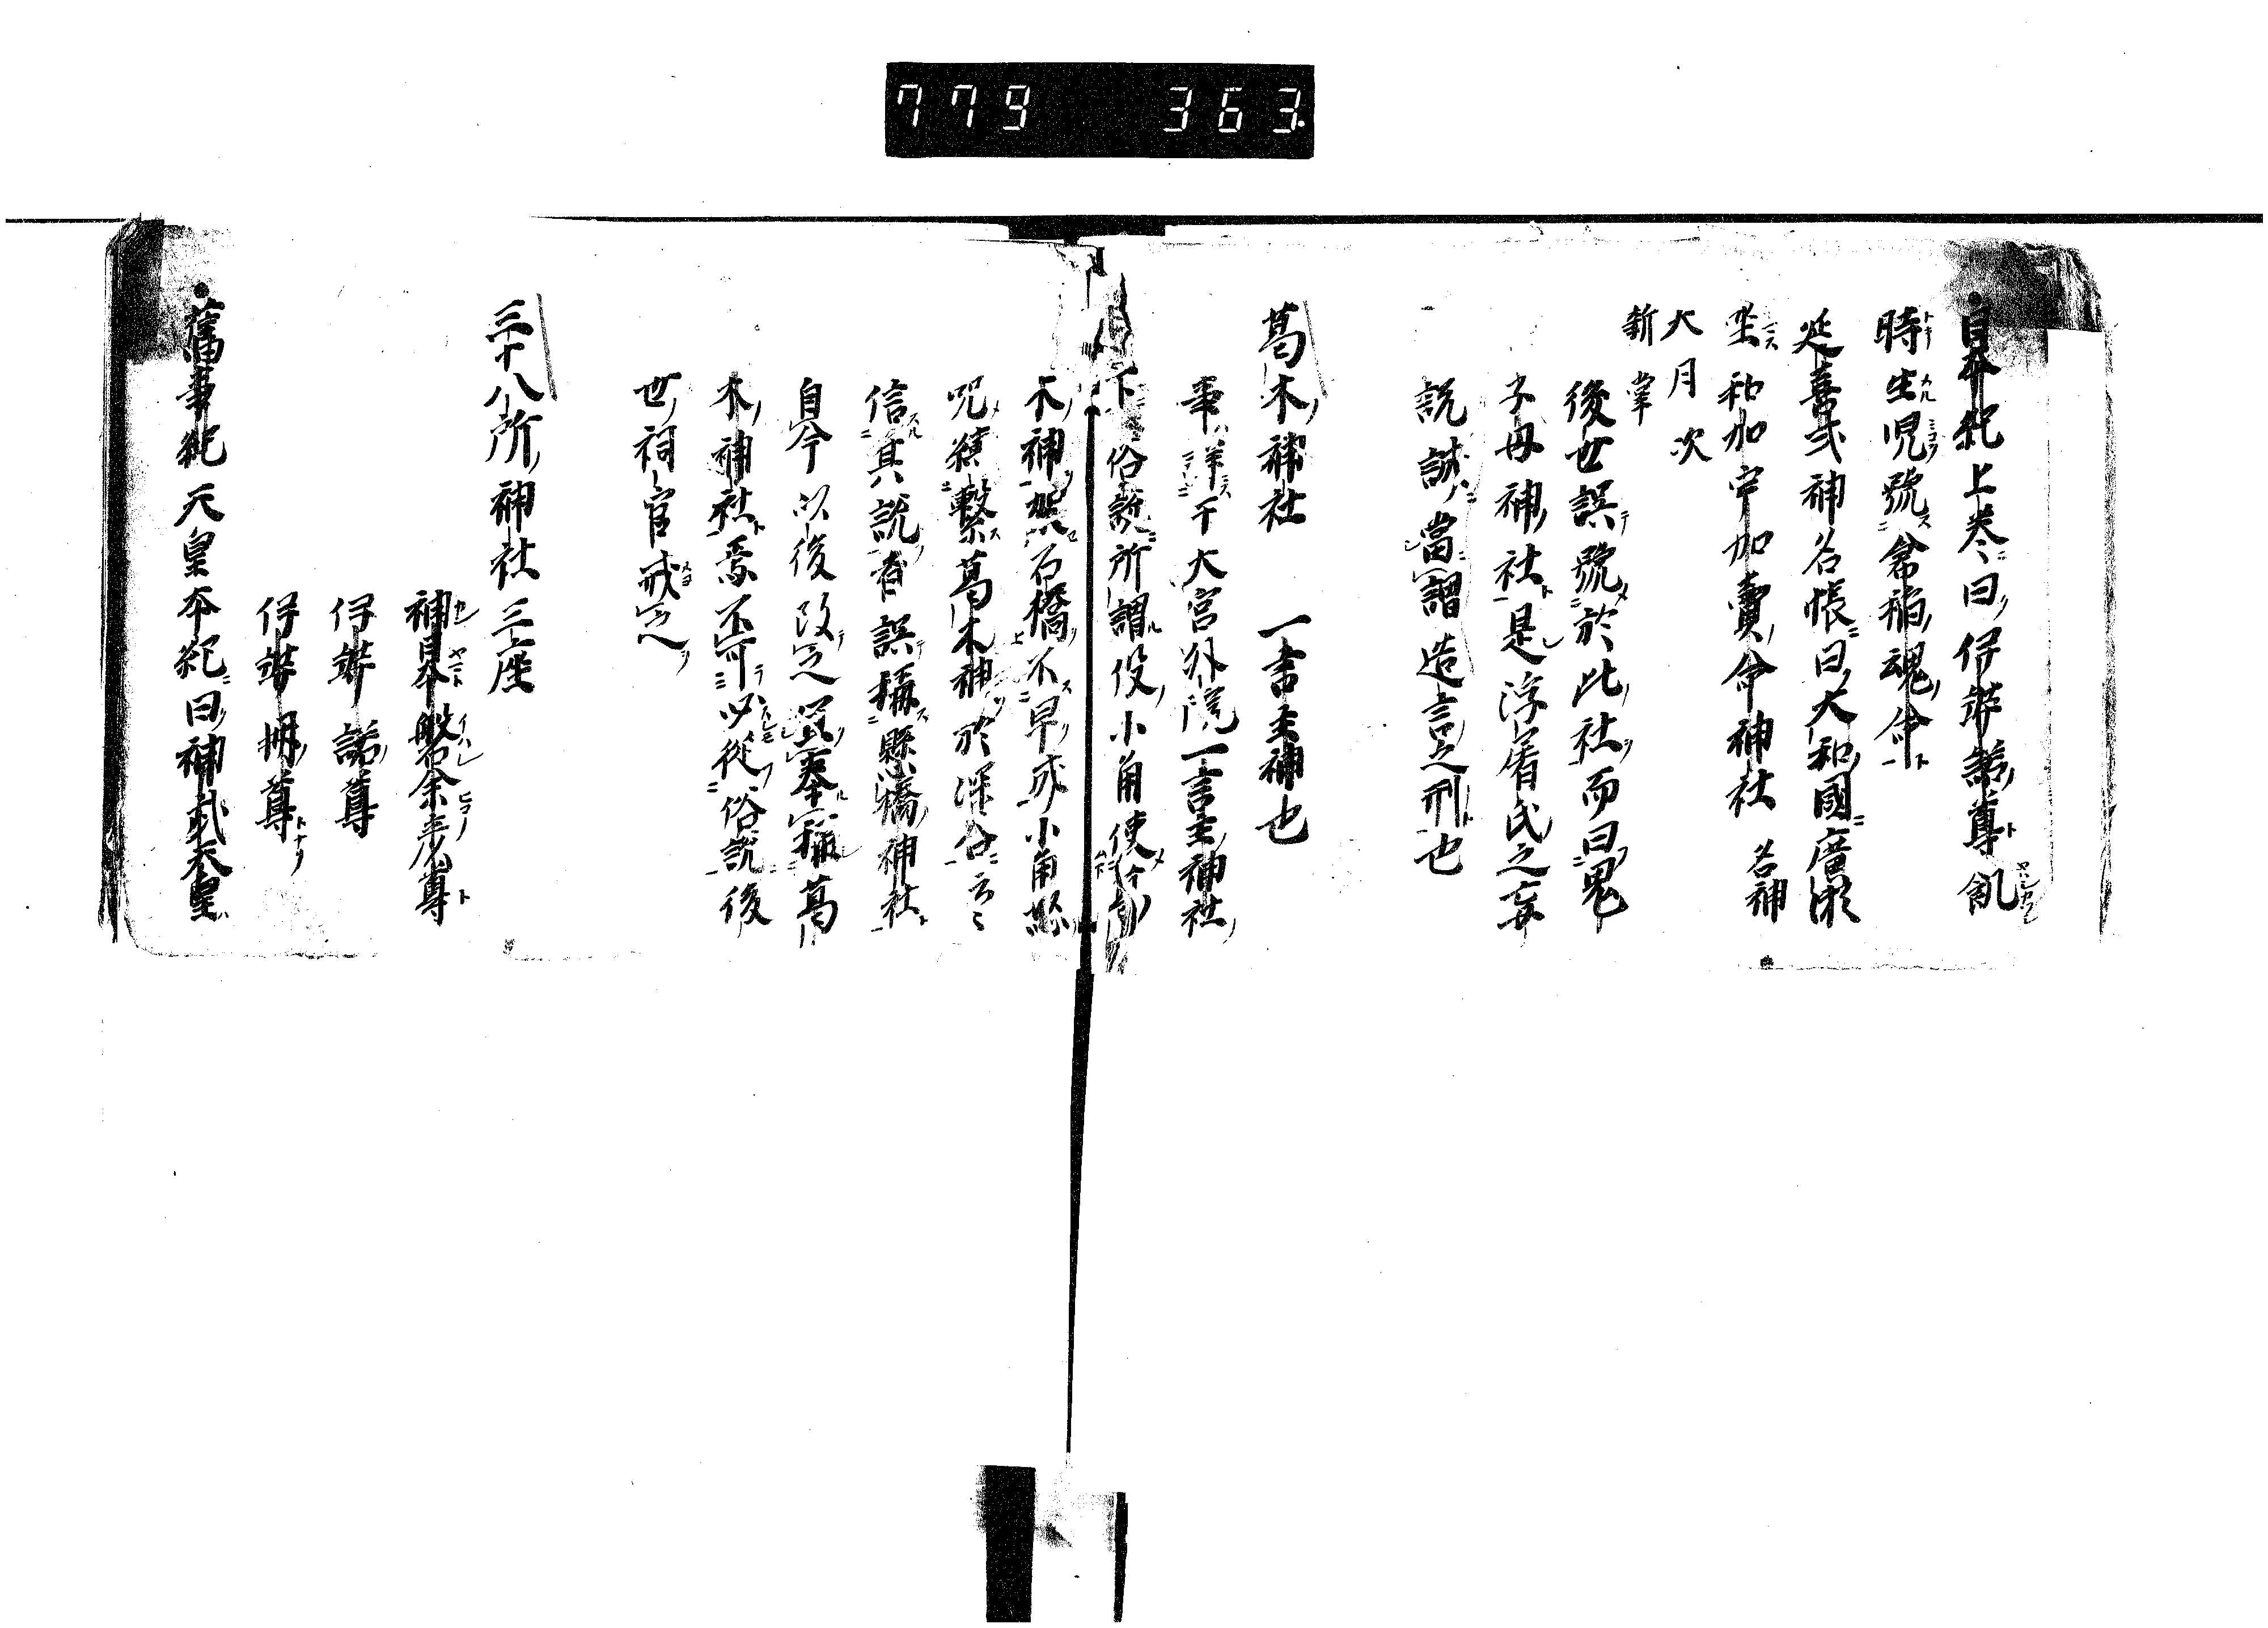 779 363
日本紀上巻曰伊弉諾尊飢
時生児號倉稲魂命
延喜式神名帳曰大和國廣瀬
坐和加宇加賣命神社 名神
大月次
新嘗
後世誤號於此社而曰鬼
子母神社是浮屠氏之妄
説誠當謂造言之刑也
葛木神社 一言主神也
事詳于大宮外院一言主神社
下俗説所謂役小角使令葛
木神架石橋不早成小角怒
呪縛繋葛木神於深谷云々
信其説者誤稱懸橋神社
自今以後改之宜奉稱葛
木神社焉不可必從俗説後
世祠官戒之
三十八所神社三座
神日本磐余彦尊
伊弉諾尊
伊弉冊尊
舊事紀天皇本紀曰神武天皇